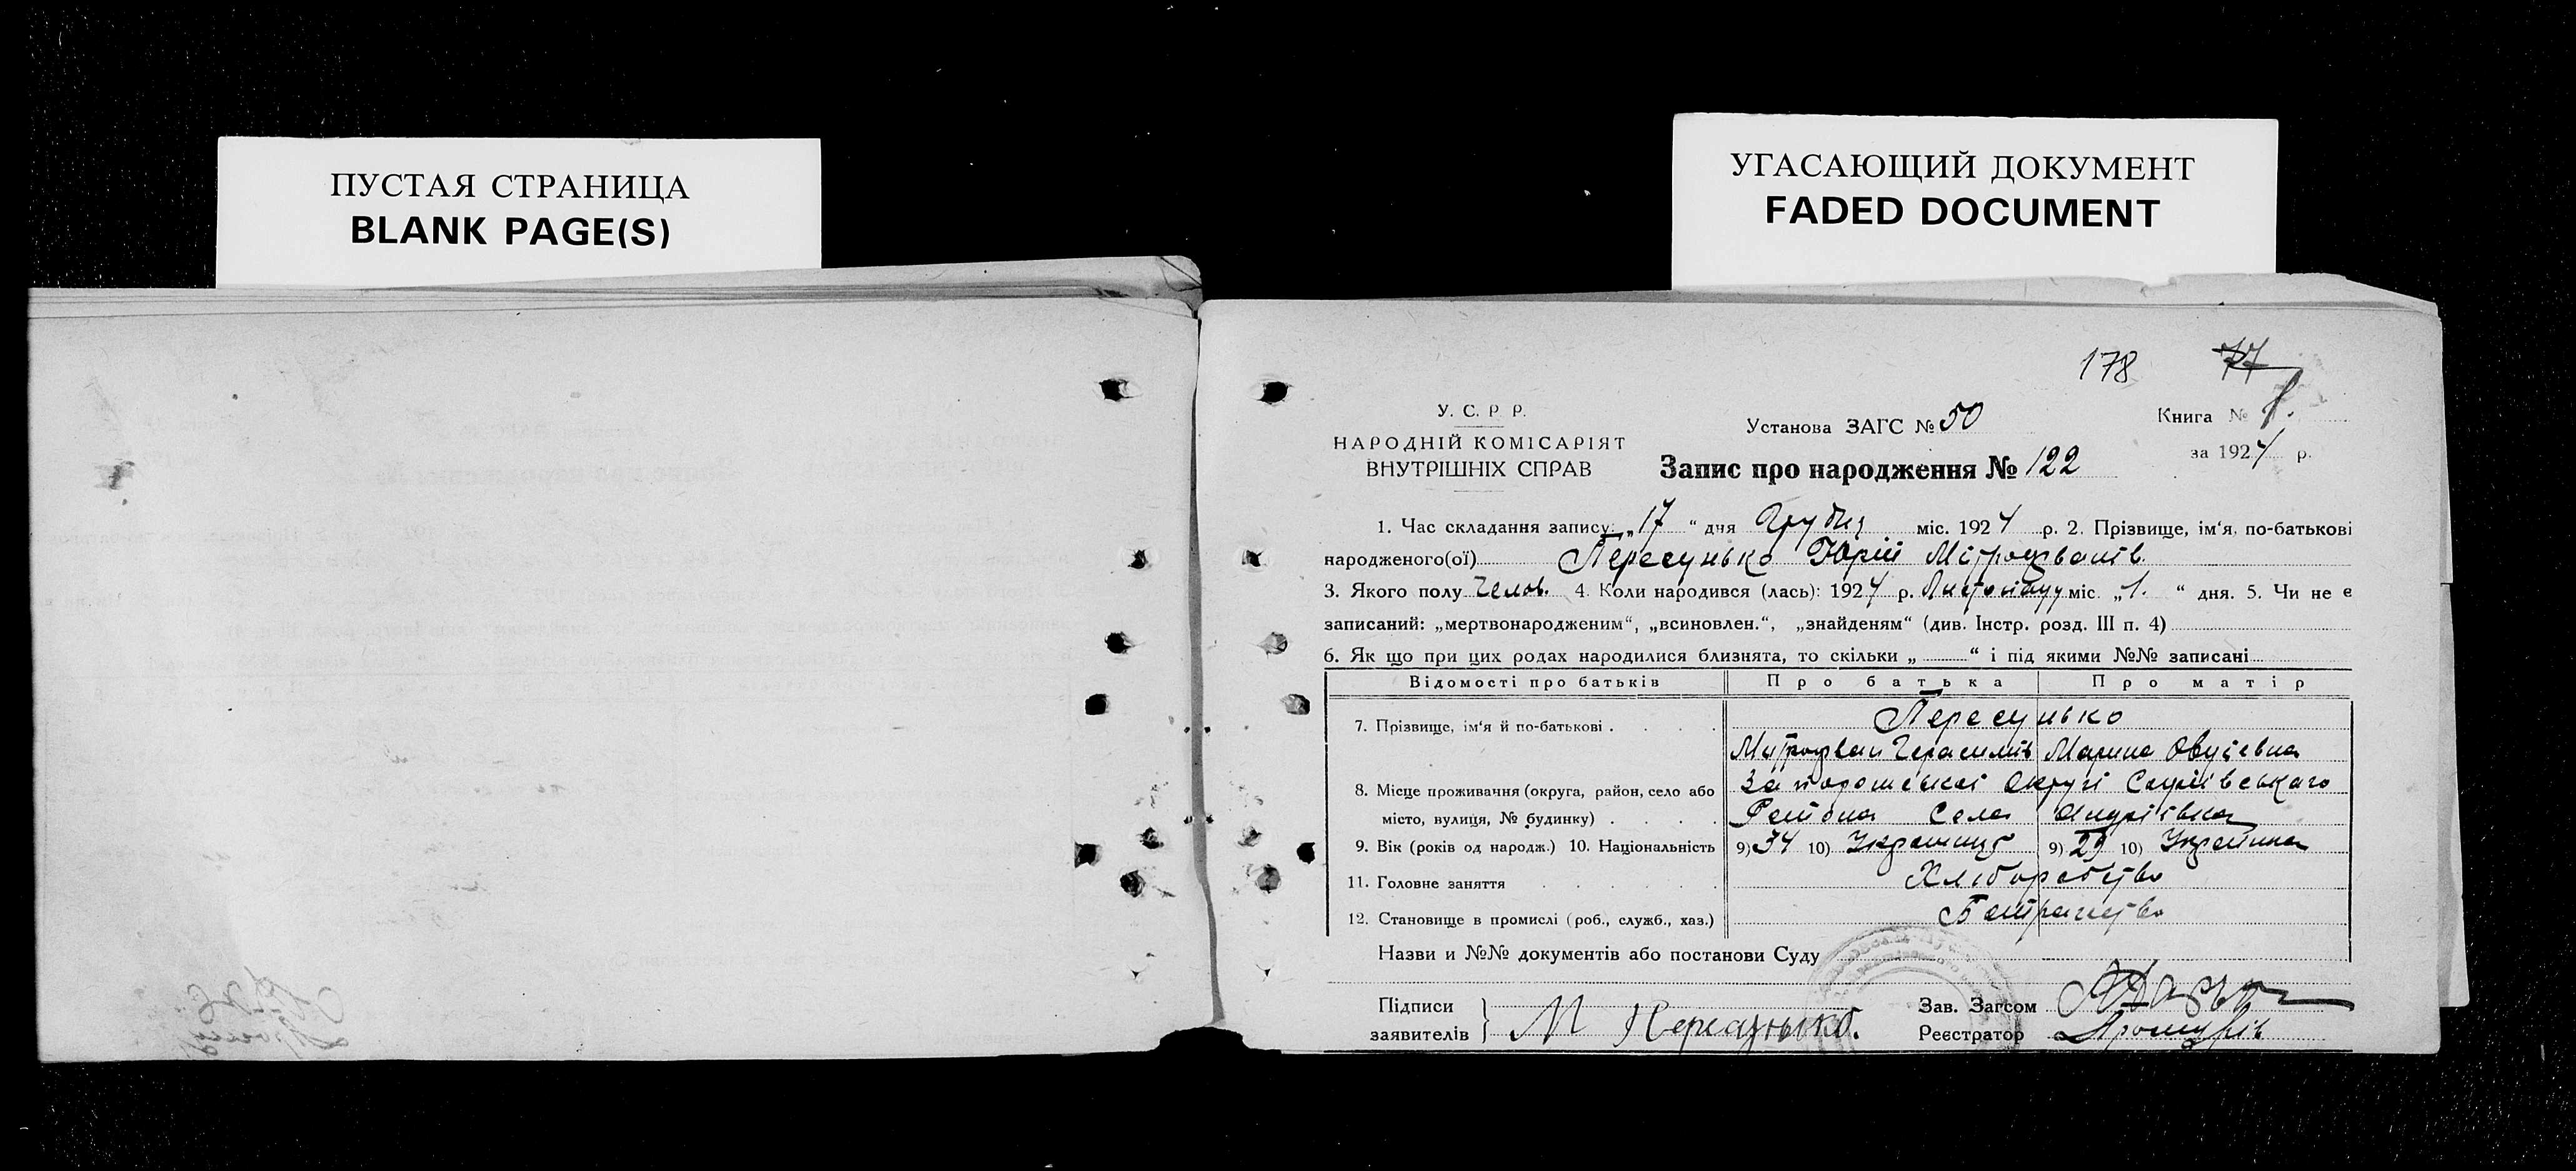 ПУСТАЯ СТРАНИЦА
BLANK PAGE(S)
УГАСАЮЩИЙ ДОКУМЕНТ
FADED DOCUMENT
178 77
У. С. Р. Р.
НАРОДНІЙ КОМІСАРІЯТ
ВНУТРІШНІХ СПРАВ
Установа ЗАГС № 50
Книга № 1.
за 1924 р.
Запис про народження № 122
1. Час складання запису: „17“ дня Грудня міс. 1924 р. 2. Прізвище, ім‘я, по-батькові
народженого(ої) Пересунько Юрій Мітрофванів
3. Якого полу Челов. 4. Коли народився (лась): 1924 р. Листопаду міс. „1.“ дня. 5. Чи не є
записаний: „мертвонародженим“, „всиновлен.“, „знайденям“ (див. Інстр. розд. III п. 4)
6. Як що при цих родах народилися близнята, то скільки „ “ і під якими №№ записані
Відомості про батьків Про батька Про матір
7. Прізвище, ім‘я й по-батькові Пересунько
Митрофван Герасимів Марина
8. Місце проживання (округа, район, село або Запорожськоі Округі
місто, вулиця, № будинку) Района Села Андріівка
9. Вік (років од народж.) 10. Національність 9) 34 10) Украінць 9) 29 10) Украинка
11. Головне заняття Хліборобство
12. Становище в промислі (роб., служб., хаз.)
Назви и №№ документів або постанови Суду
Підписи
заявителів М Пересунько.
Зав. Загсом
Реєстратор